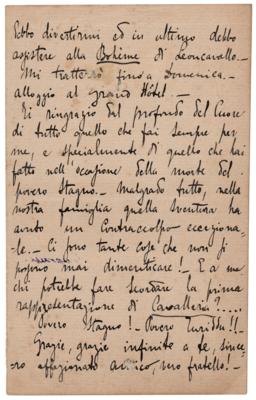 Debbo divertirmi ed in ultimo debbo
assistere alla Bohème di Leoncavallo. -
Mi tratterrò fino a Domenica. -
alloggio al Grand Hôtel. -
Ti ringrazio dal profondo del Cuore
di tutto quello che fai sempre per
me, e specialmente di quello che hai
fatto nell'occasione della morte del
povero Stagno. - Malgrado tutto, nella
nostra famiglia quella sventura ha
avuto un contraccolpo eceziona-
le. - Ci sono tante cose che non si
possono mai dimenticare! E a me
chi potrebbe fare scordare la prima
rappresentazione di Cavalleria?....
Povero Stagno! Povero Turiddu!!
Grazie, grazie infinite a te, since-
ro affezionato amico, vero fratello! -